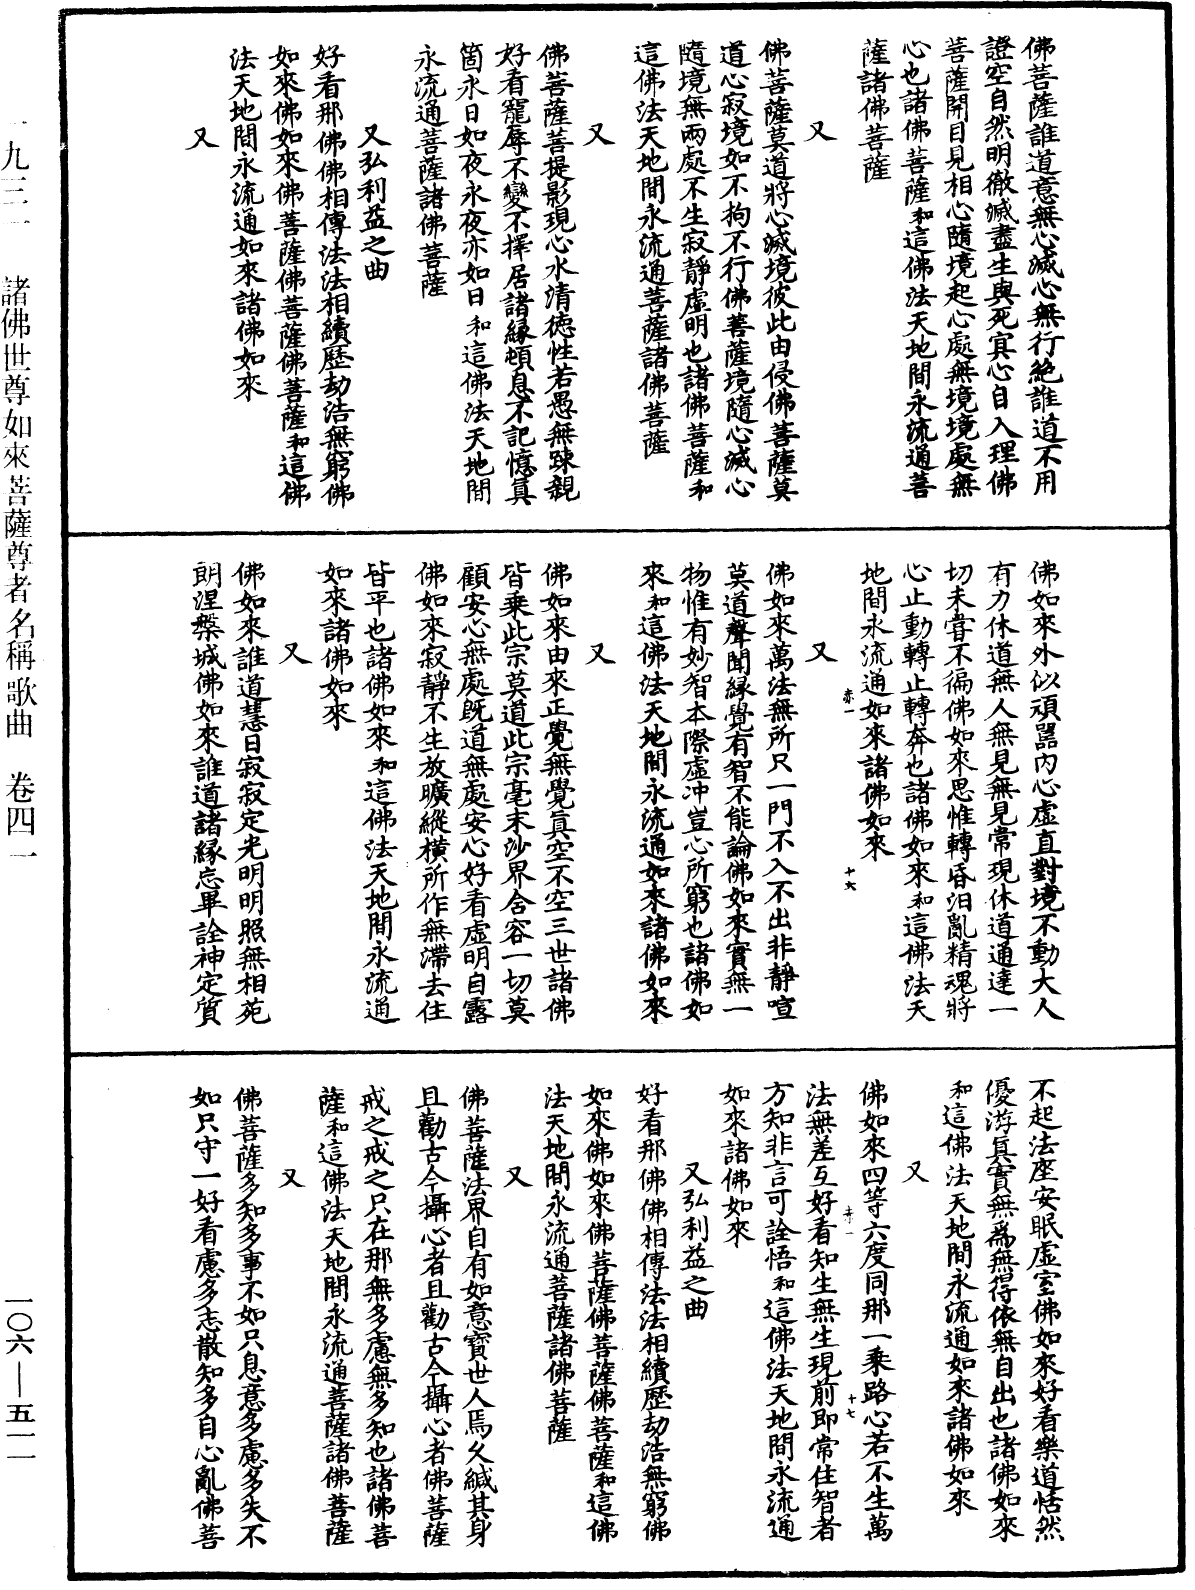 佛菩薩誰道意無心滅心無行絶誰道不用
證空自然明徹滅盡生與死冥心自入理佛
菩薩開目見相心隨境起心處無境境處無
心也諸佛菩薩和這佛法天地間永流通菩
薩諸佛菩薩
又
佛菩薩莫道將心滅境彼此由侵佛菩薩莫
道心寂境如不拘不行佛菩薩境隨心滅心
隨境無兩處不生寂靜虛明也諸佛菩薩和
這佛法天地間永流通菩薩諸佛菩薩
又
佛菩薩菩提影現心水清德性若愚無疎親
好看寵辱不變不擇居諸緣頓息不記憶眞
箇永日如夜永夜亦如日和這佛法天地間
永流通菩薩諸佛菩薩
又弘利益之曲
好看那佛佛相傳法法相續歷劫浩無窮佛
如來佛如來佛菩薩佛菩薩佛菩薩和這佛
法天地間永流通如來諸佛如來
又
佛如來外似頑嚚內心虛直對境不動大人
有力休道無人無見無見常現休道通達一
切未嘗不徧佛如來思惟轉昏汩亂精魂將
心止動轉止轉奔也諸佛如來和這佛法天
地間永流通如來諸佛如來
又
赤一
十六
佛如來萬法無所尺一門不入不出非靜喧
莫道聲聞緣覺有智不能論佛如來實無一
物惟有妙智本際虛冲豈心所窮也諸佛如
來和這佛法天地間永流通如來諸佛如來
又
佛如來由來正覺無覺眞空不空三世諸佛
皆乘此宗莫道此宗毫末沙界含容一切莫
顧安心無處既道無處安心好看虛明自露
佛如來寂靜不生放曠縱橫所作無滯去住
皆平也諸佛如來和這佛法天地間永流通
如來諸佛如來
又
佛如來誰道慧日寂寂定光明明照無相苑
朗涅槃城佛如來誰道諸緣忘畢詮神定質
不起法座安眠虛室佛如來好看樂道恬然
優游眞實無爲無得依無自出也諸佛如來
和這佛法天地間永流通如來諸佛如來
又
佛如來四等六度同那一乘路心若不生萬
法無差互好看知生無生現前即常住智者
方知非言可詮悟和這佛法天地間永流通
如來諸佛如來
十七
又弘利益之曲
好看那佛佛相傳法法相續歷劫浩無窮佛
如來佛如來佛菩薩佛菩薩佛菩薩和這佛
法天地間永流通菩薩諸佛菩薩
又
佛菩薩法界自有如意寶世人焉久緘其身
且勸古今攝心者且勸古今攝心者佛菩薩
戒之戒之只在那無多慮無多知也諸佛菩
薩和這佛法天地間永流通菩薩諸佛菩薩
又
佛菩薩多知多事不如只息意多慮多失不
如只守一好看慮多志散知多自心亂佛菩
一九三一 諸佛世尊如來菩薩尊者名稱歌曲 卷四一
一〇六—五一一